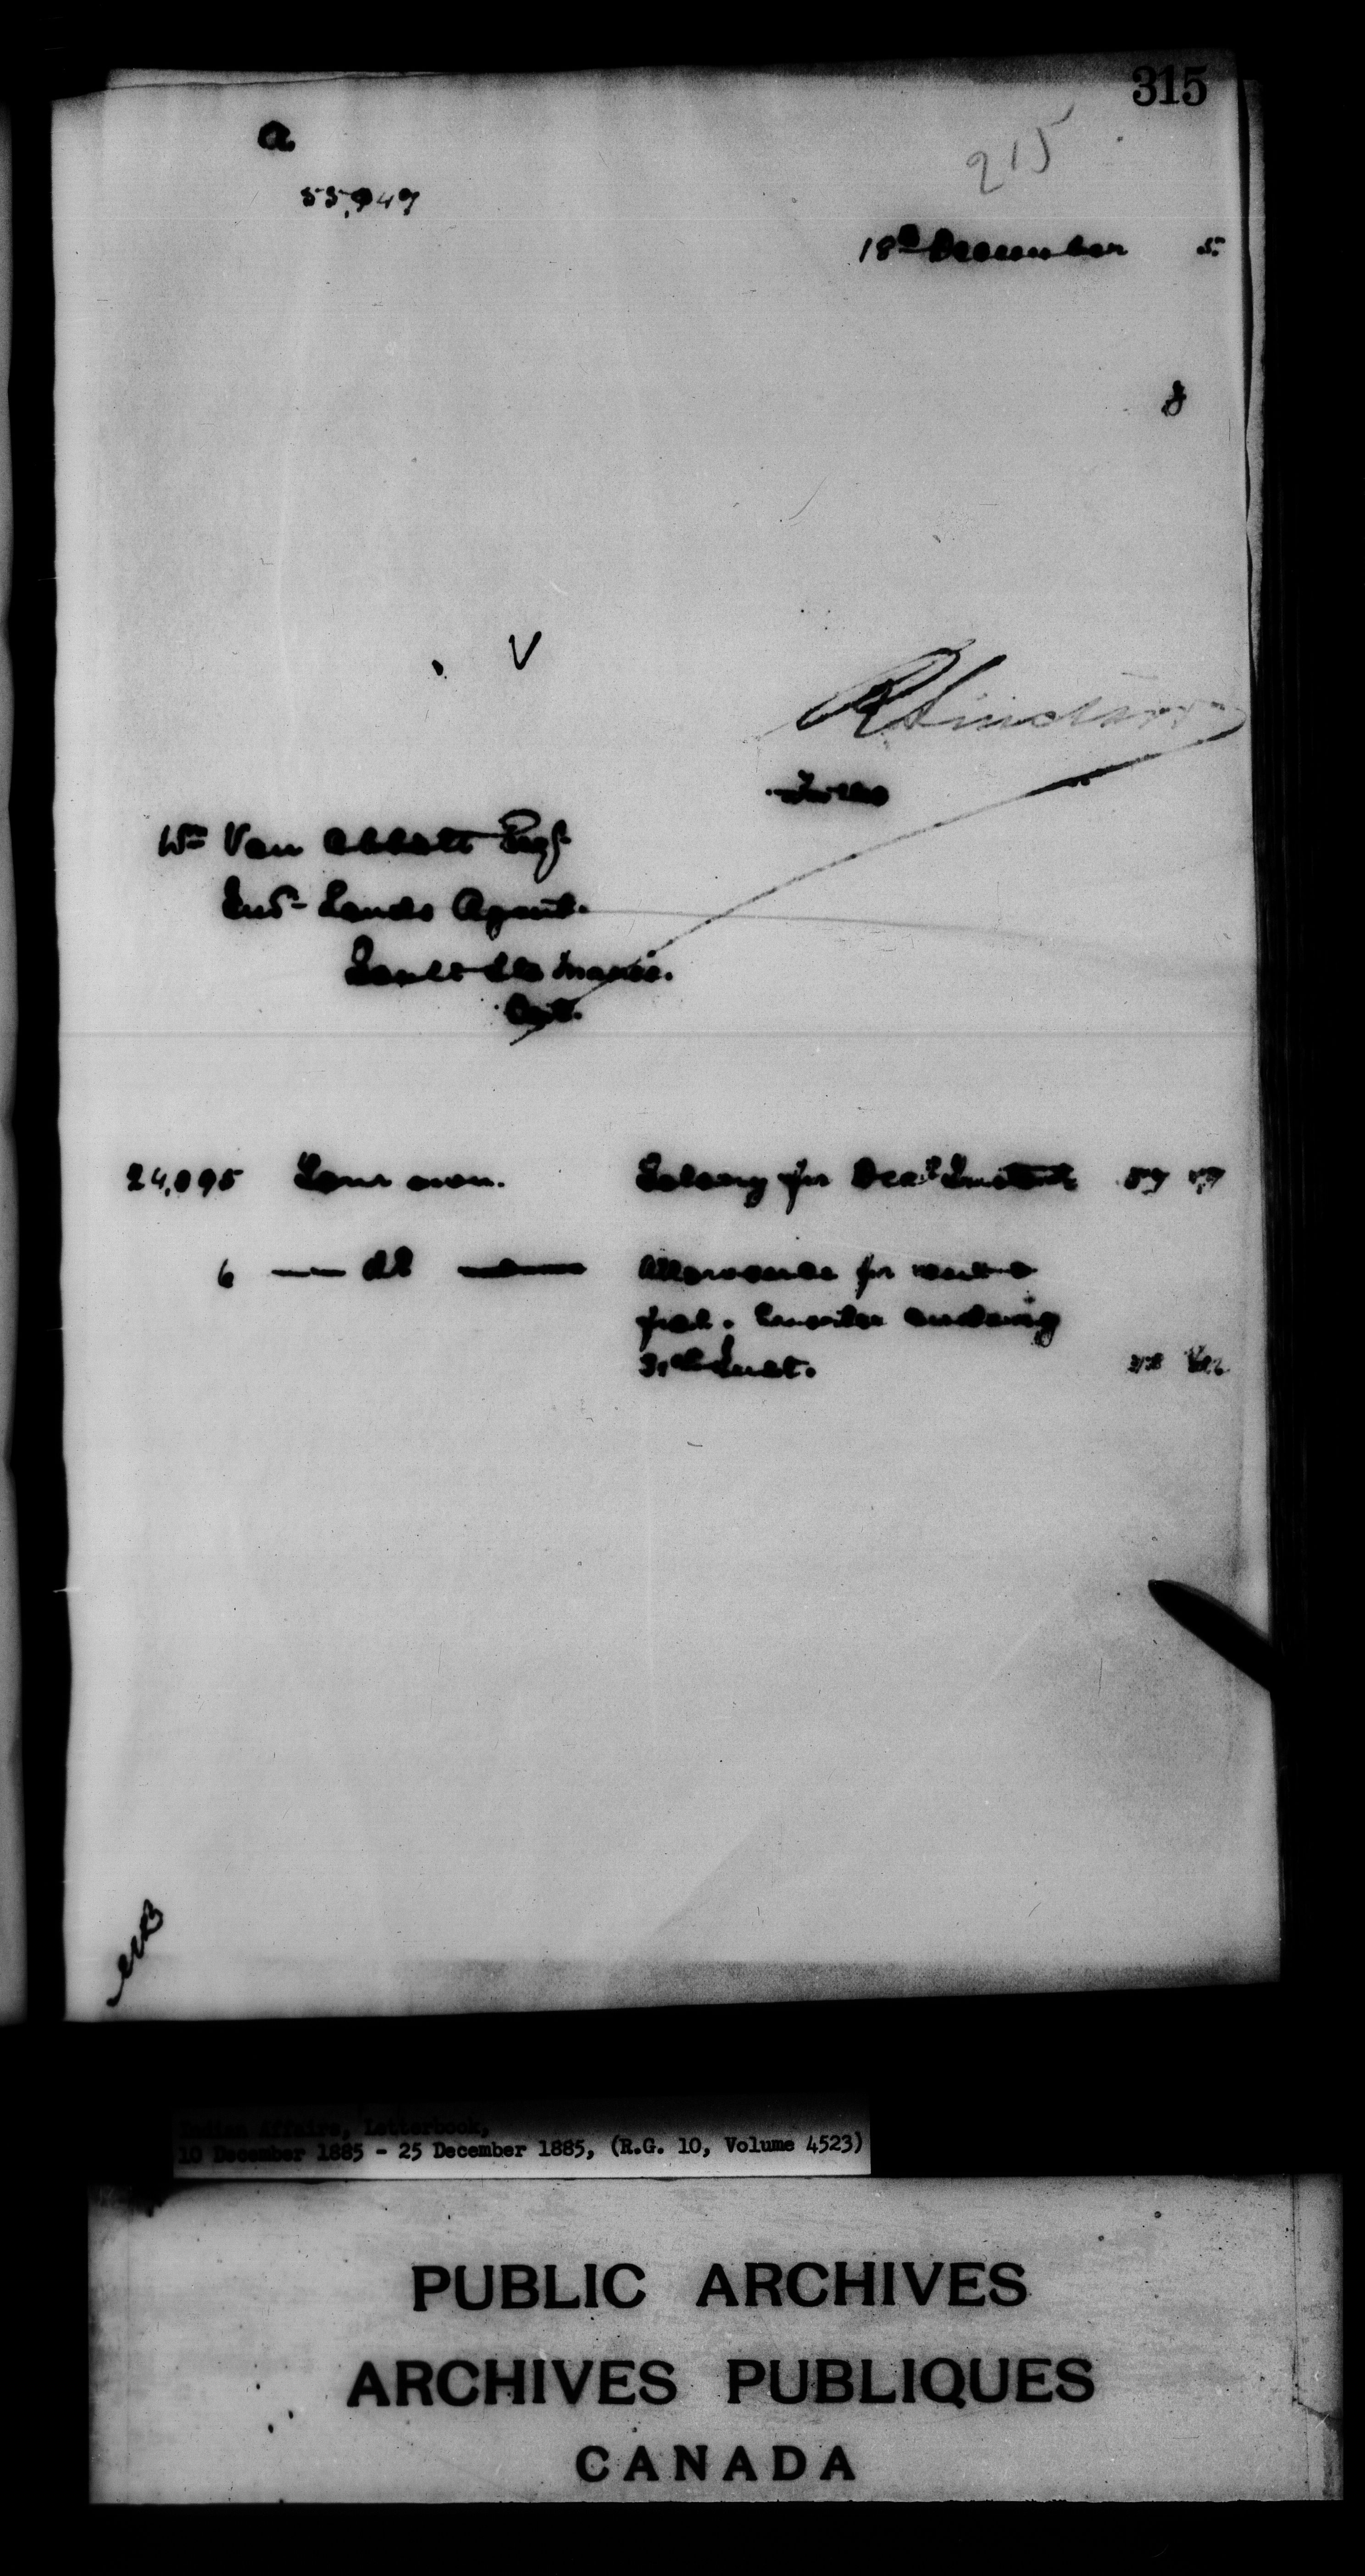 315
215
a
55,947
18th December 5.
V
R Sinclair
Wm Van Abbott Esq.
Ind. Lands Agent.
Sault Ste Marie.
Ont.
24,095 Your own. Salary for Decr Instant
6 — do — Allowance for rent &
fuel. quarter ending
31st Inst.
Indian Affairs, Letterbook,
10 December 1885 - 25 December 1885, (R.G. 10, Volume 4523)
PUBLIC ARCHIVES
ARCHIVES PUBLIQUES
CANADA